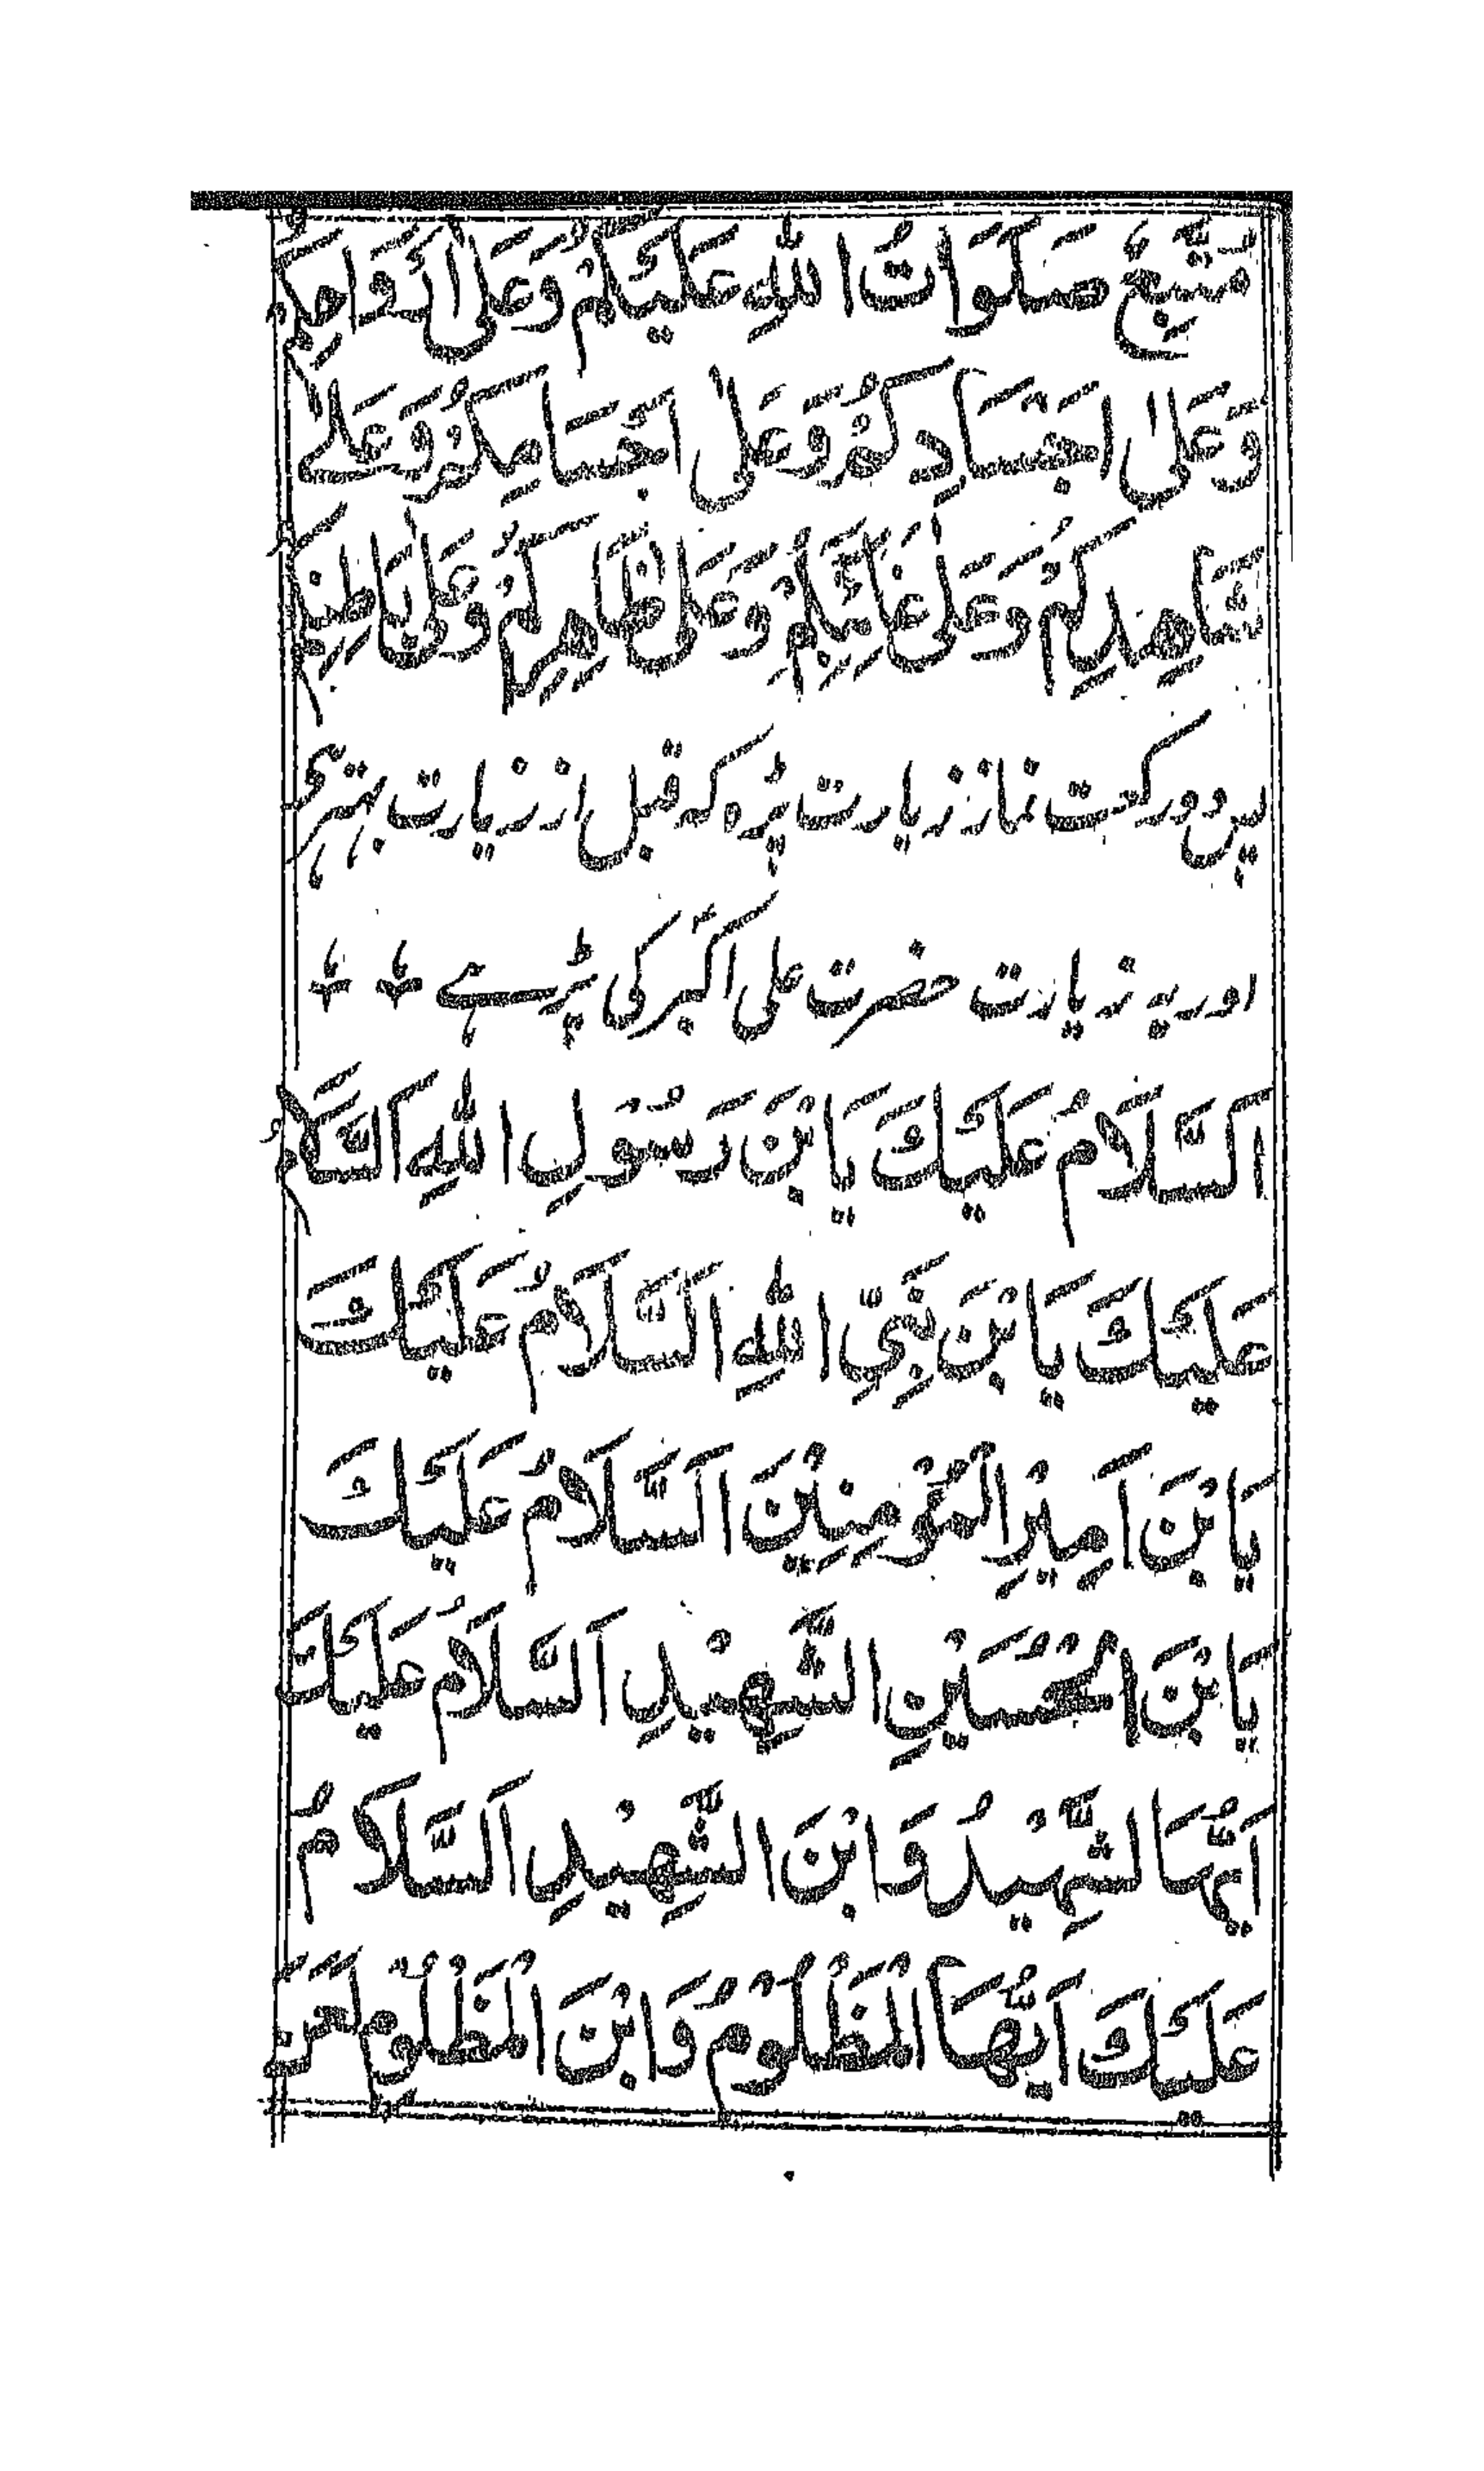 مُتَّبِعٌ صَلَوَاتُ اللّٰهِ عَلَيْكُمْ وَعَلٰی اَرْوَاحِكُمْ
وَعَلٰی اَجْسَادِكُمْ وَعَلٰی اَجْسَامِكُمْ وَعَلٰے
شَاهِدِكُمْ وَعَلٰی غَائِبِكُمْ وَعَلٰی ظَاهِرِكُمْ وَعَلٰی بَاطِنِكُمْ
پس دو رکعت نماز زیارت پڑہ کہ قبل از زیارت بہتر ہی
اور یہ زیارت حضرت علی اکبر کی پڑہے
اَلسَّلَامُ عَلَيْكَ يَابْنَ رَسُوْلِ اللّٰهِ اَلسَّلَامُ
عَلَيْكَ يَابْنَ نَبِيِّ اللّٰهِ اَلسَّلَامُ عَلَيْكَ
يَابْنَ اَمِيْرِ الْمُؤْمِنِيْنَ اَلسَّلَامُ عَلَيْكَ
يَابْنَ الْحُسَيْنِ الشَّهِيْدِ اَلسَّلَامُ عَلَيْكَ
اَيُّهَا الشَّهِيْدُ وَابْنَ الشَّهِيْدِ اَلسَّلَامُ
عَلَيْكَ اَيُّهَا الْمَظْلُوْمُ وَابْنَ الْمَظْلُوْمِ لَعَنَ